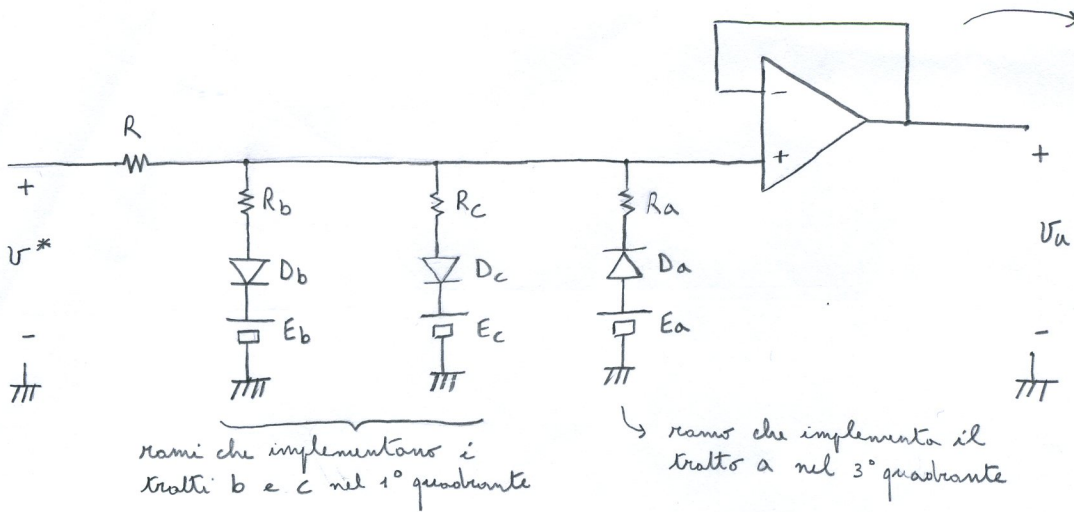 R
+
v*
-
Rb
Db
Eb
Rc
Dc
Ec
Ra
Da
Ea
-
+
+
vu
-
rami che implementano i
tratti b e c nel 1° quadrante
ramo che implementa il
tratto a nel 3° quadrante